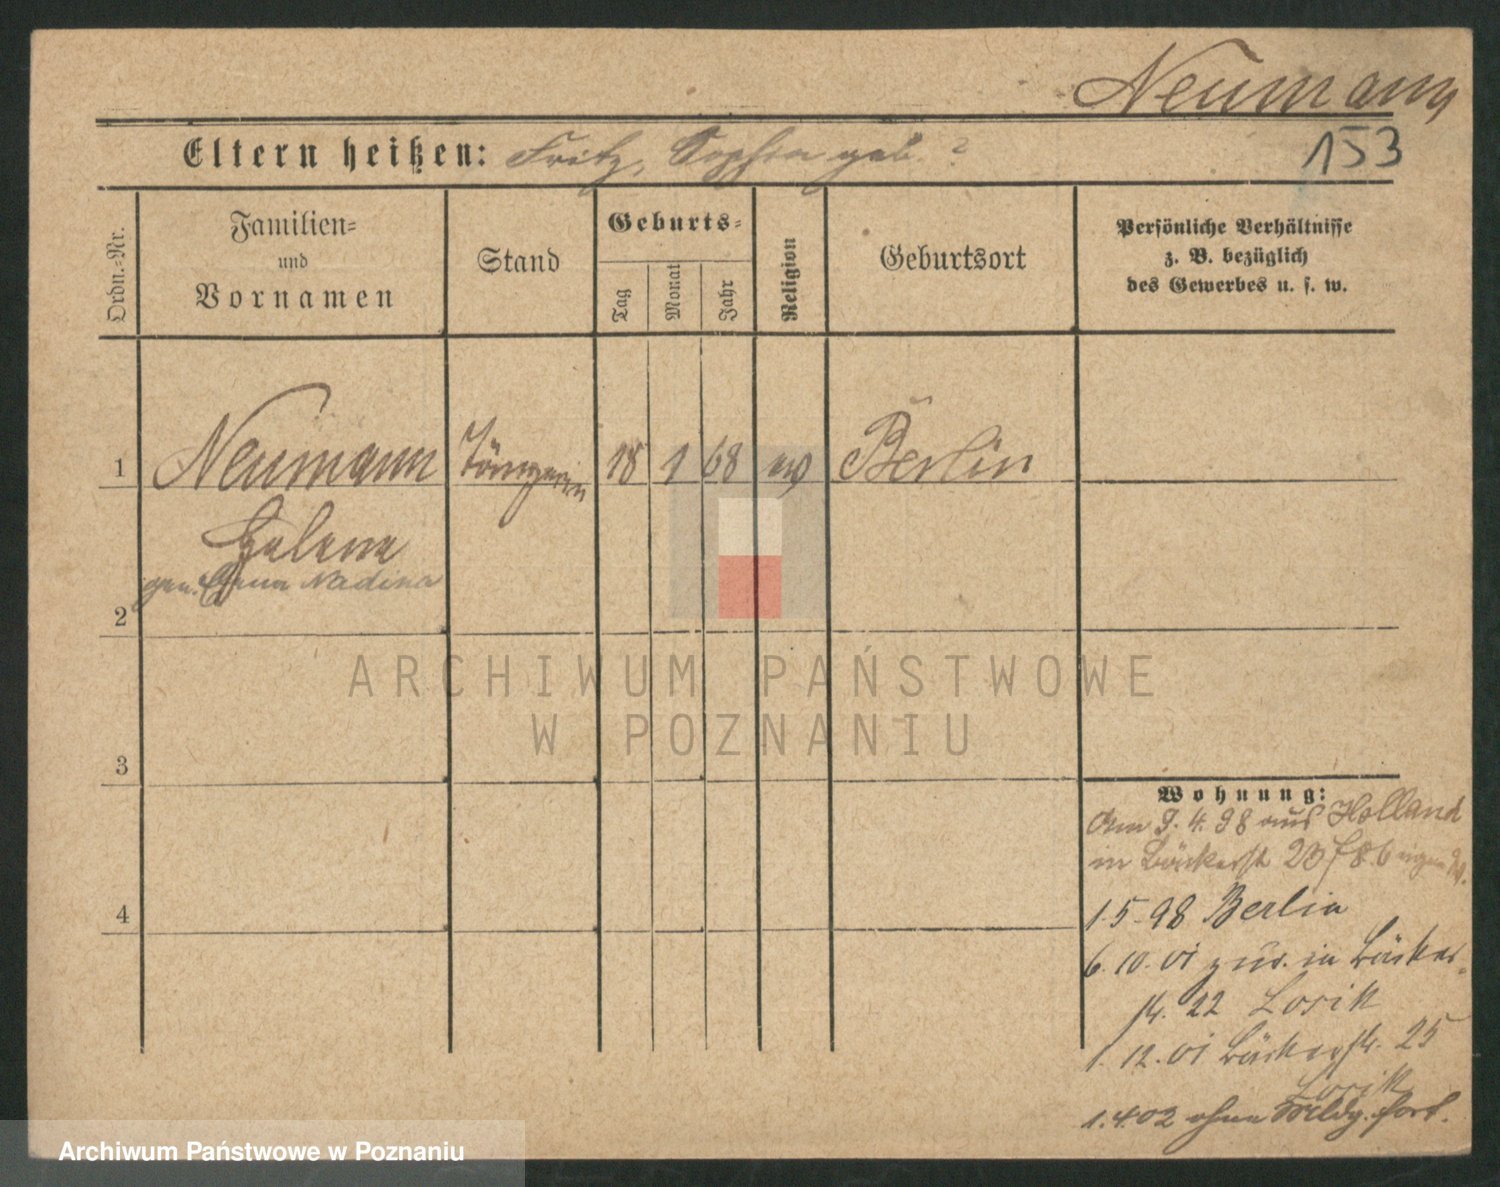 Neumann
153
Eltern heißen: Fritz, Sophia geb. ?
Ordn.-Nr.
Familien-
und
Vornamen
Stand
Geburts-
Tag
Monat
Jahr
Religion
Geburtsort
Persönliche Verhältnisse
z. B. bezüglich
des Gewerbes u. s. w.
1 Neumann 18 1 68 ev Berlin
Helene
gen. Nadina
2
ARCHIWUM PAŃSTWOWE
W POZNANIU
3
Wohnung:
Am 9. 4. 98 aus Holland
in Bäckerstr 23
1.5.98 Berlin
4
6. 10. 01 zur. in Bäcker-
str. 22 Losik
1. 12. 01 Bäckerstr. 25
Losik
1.4.02 ohne Meldg. fort.
Archiwum Państwowe w Poznaniu